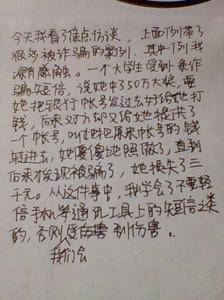 今天我看了焦点访谈，上面列举了
很多被诈骗的案例，其中一例我
深有感触。一个大学生受到一条诈
骗短信，说她中了50万大奖，要
她把银行帐号发过去好给她打
钱，后来对方却又给她提供了
一个帐号，叫她把原来帐号的钱
转进去，她傻傻地照做了，直到
后来才发现被骗了，她损失了三
千元。从这件事中，我学会了不要轻
信手机等通讯工具上的短信之类
的，否则会受到伤害。
我们会